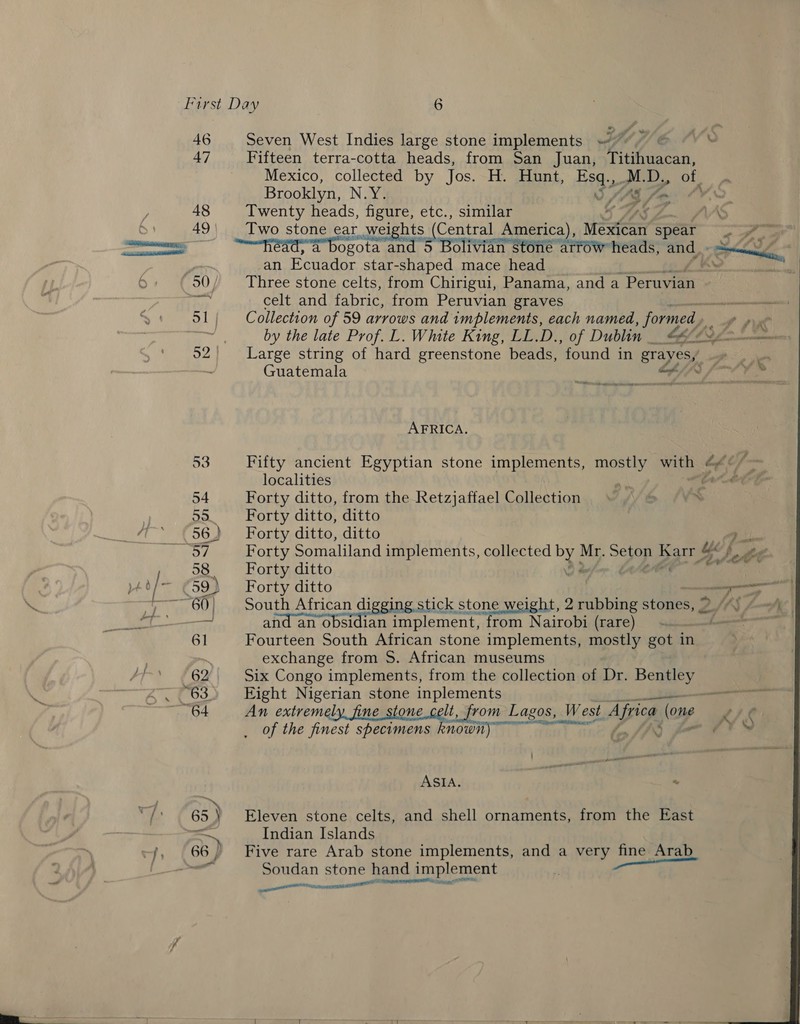 First Day 6
46 Seven West Indies large stone implements
47 Fifteen terra-cotta heads, from San Juan, Titihuacan,
Mexico, collected by Jos. H. Hunt, Esq., M.D., of
Brooklyn, N.Y.
48 Twenty heads, figure, etc., similar
49 Two stone ear weights (Central America), Mexican spear
head, a bogota and 5 Bolivian stone arrow heads, and
an Ecuador star-shaped mace head
50 Three stone celts, from Chirigui, Panama, and a Peruvian
celt and fabric, from Peruvian graves
51 Collection of 59 arrows and implements, each named, formed
by the late Prof. L. White King, LL.D., of Dublin
52 Large string of hard greenstone beads, found in graves,
Guatemala
AFRICA.
53 Fifty ancient Egyptian stone implements, mostly with
localities
54 Forty ditto, from the Retzjaffael Collection
55 Forty ditto, ditto
56 Forty ditto, ditto
57 Forty Somaliland implements, collected by Mr. Seton Karr
58 Forty ditto
59 Forty ditto
60 South African digging stick stone weight, 2 rubbing stones,
and an obsidian implement, from Nairobi (rare)
61 Fourteen South African stone implements, mostly got in
exchange from S. African museums
62 Six Congo implements, from the collection of Dr. Bentley
63 Eight Nigerian stone inplements
64 An extremely fine stone celt, from Lagos, West Africa (one
of the finest specimens known)
ASIA.
65 Eleven stone celts, and shell ornaments, from the East
Indian Islands
66 Five rare Arab stone implements, and a very fine Arab
Soudan stone hand implement